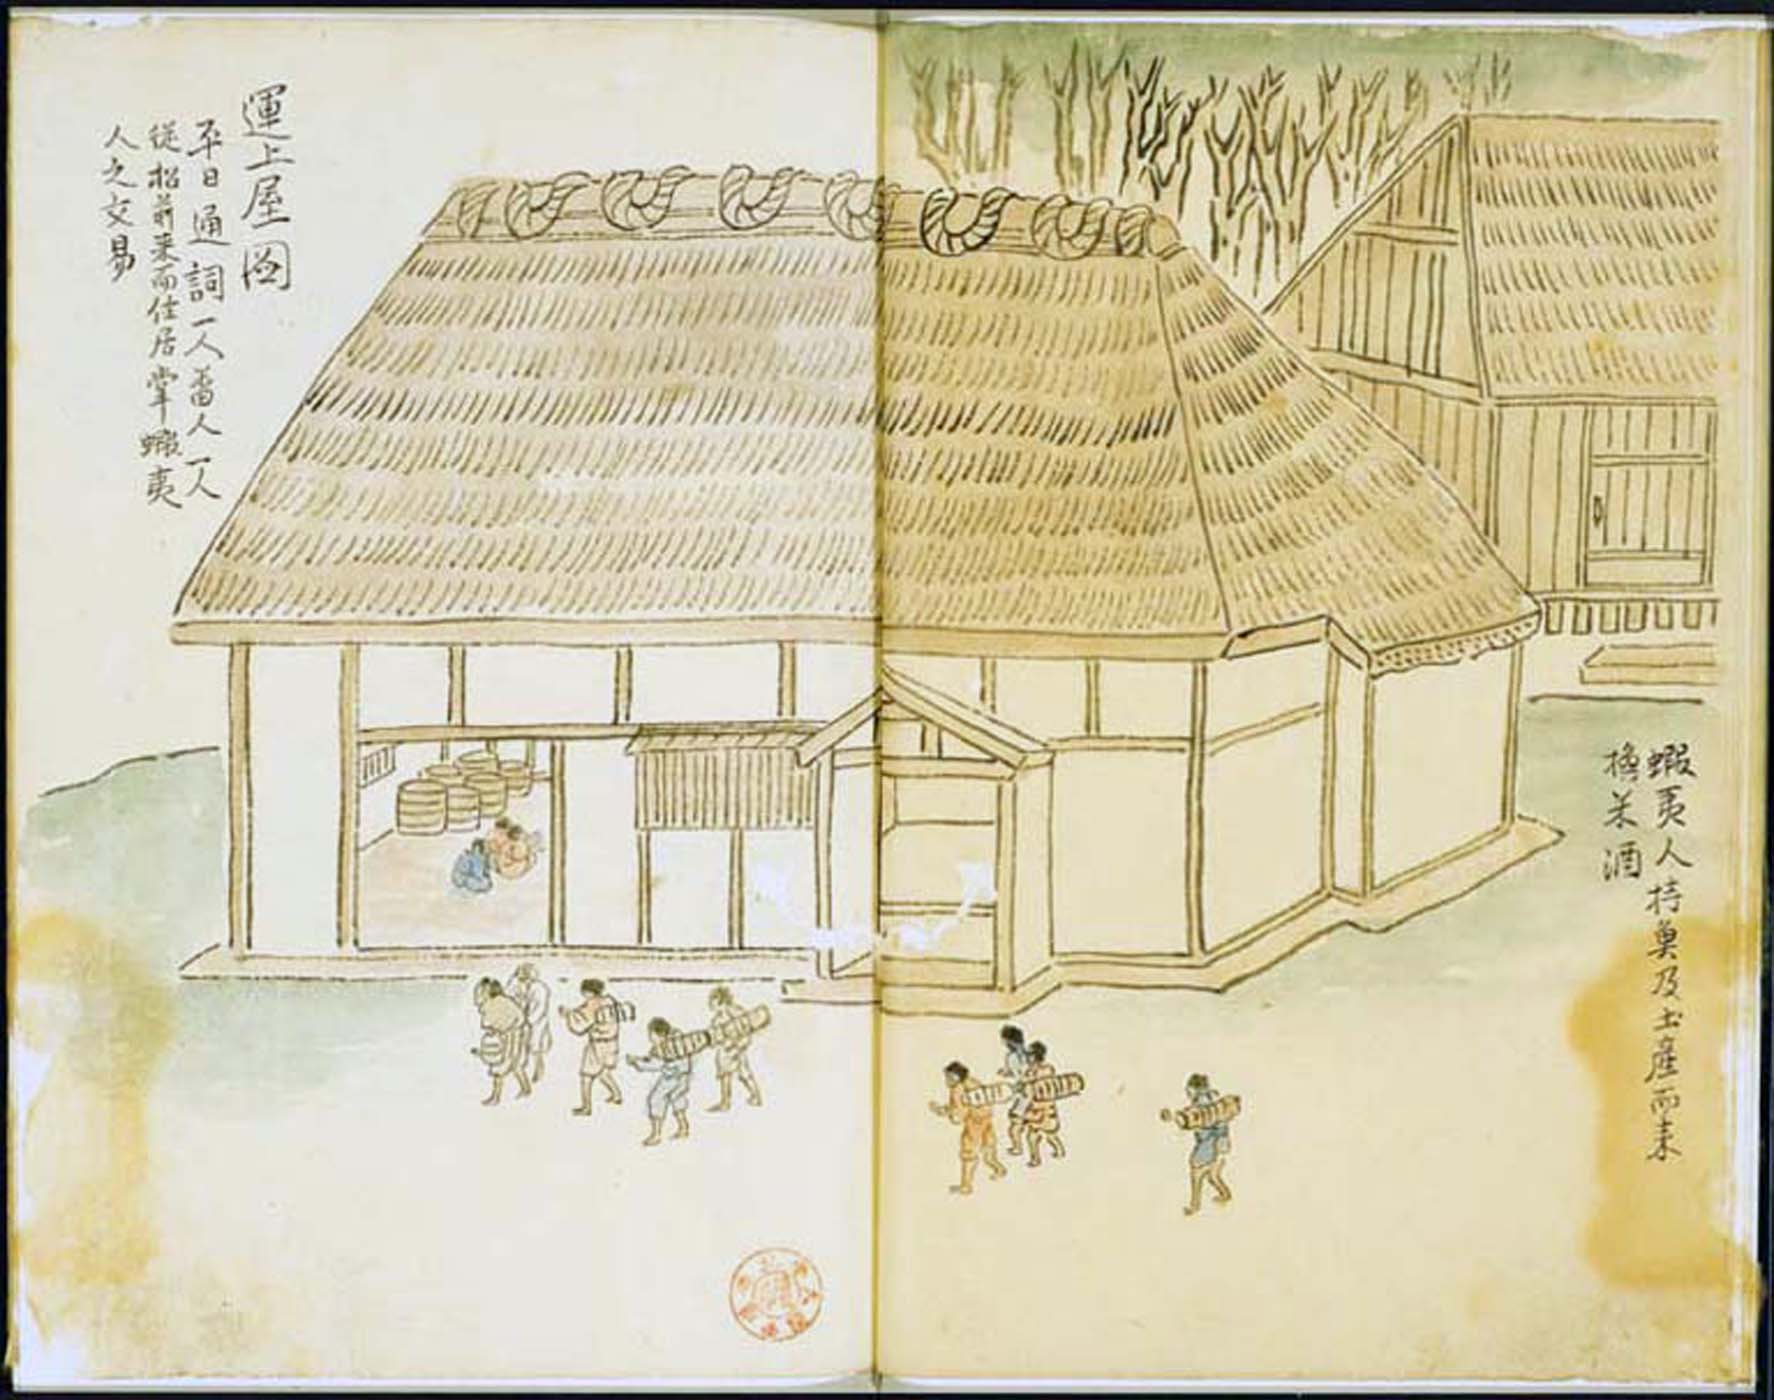 蝦夷人持魚及土産而来
換米酒
運上屋図
平日通詞一人番人一人
従松前来而住居掌蝦夷
人之交易